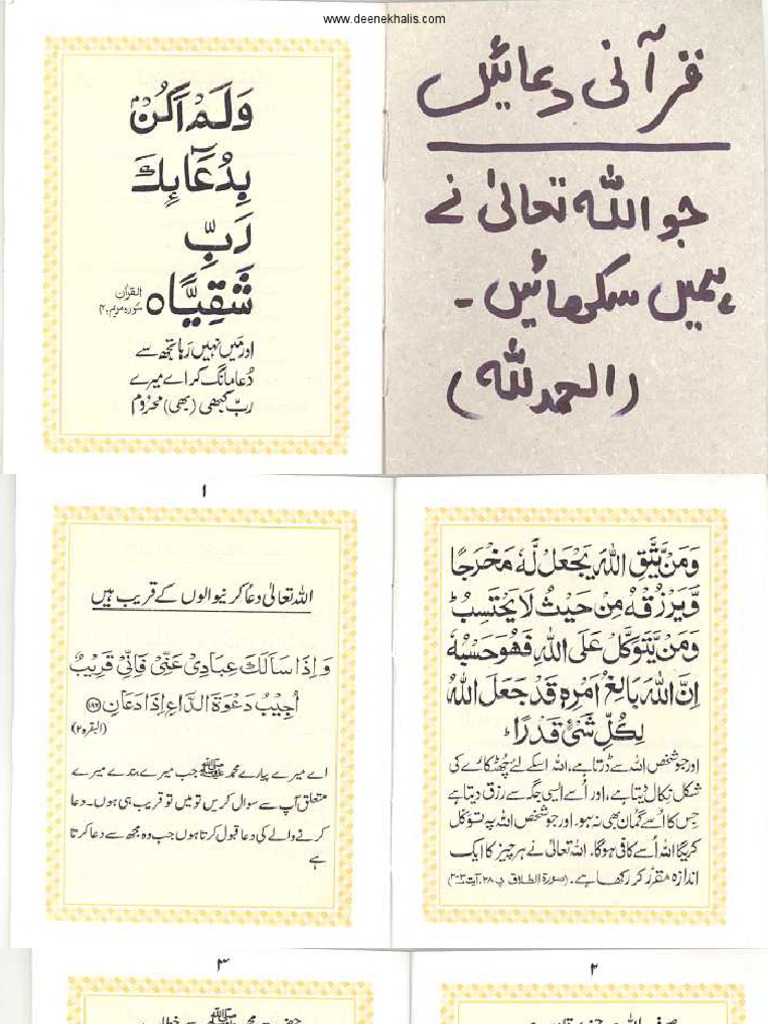 www.deenekhalis.com
قرآنی دعائیں
جو اللہ تعالیٰ نے
ہمیں سکھائیں ۔
(الحمدللہ)
وَلَمْ اَكُنْۢ
بِدُعَآىِٕكَ
رَبِّ
شَقِیًّا ہ
القرآن
سورہ مریم ۴
اور میں نہیں رہا تجھ سے
دُعا مانگ کر اے میرے
ربّ کبھی (بھی) محروم
وَمَنْ یَّتَّقِ اللّٰهَ یَجْعَلْ لَّهٗ مَخْرَجًا
وَّیَرْزُقْهُ مِنْ حَیْثُ لَا یَحْتَسِبُ ؕ
وَمَنْ یَّتَوَكَّلْ عَلَی اللّٰهِ فَهُوَ حَسْبُهٗ
اِنَّ اللّٰهَ بَالِغُ اَمْرِهٖ قَدْ جَعَلَ اللّٰهُ
لِكُلِّ شَیْءٍ قَدْرًا ؕ
اور جو شخص اللہ سے ڈرتا ہے، اللہ اسکے لئے چُھٹکارے کی
شکل نکال دیتا ہے، اور اُسے ایسی جگہ سے رزق دیتا ہے
جس کا اُسے گمان بھی نہ ہو۔ اور جو شخص اللہ پہ توکل
کریگا اللہ اُسے کافی ہوگا۔ اللہ تعالیٰ نے ہر چیز کا ایک
اندازہ مقرّر کر رکھا ہے۔ (سورۃ الطلاق پ ۲۸، آیت ۲-۳)
۱
اللہ تعالیٰ دعا کرنیوالوں کے قریب ہیں
وَاِذَا سَاَلَكَ عِبَادِیْ عَنِّیْ فَاِنِّیْ قَرِیْبٌ
اُجِیْبُ دَعْوَةَ الدَّاعِ اِذَا دَعَانِ ﴿۱۸۶﴾
(البقرہ ۲)
اے میرے پیارے محمد ﷺ جب میرے بندے میرے
متعلق آپ سے سوال کریں تو میں تو قریب ہی ہوں۔ دعا
کرنے والے کی دعا قبول کرتا ہوں جب وہ مجھ سے دعا کرتا
ہے
۲
۳